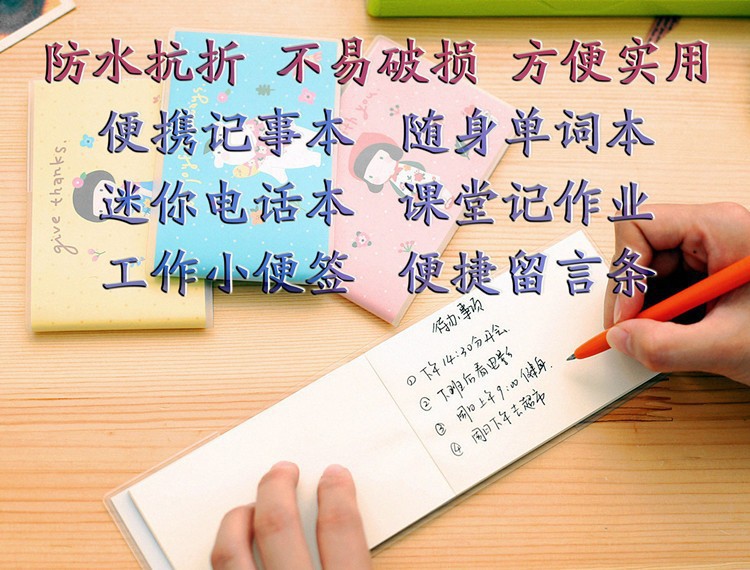 防水抗折 不易破损 方便实用
便携记事本 随身单词本
迷你电话本 课堂记作业
工作小便签 便捷留言条
give thanks.
待办事项
① 下午14:30分开会.
② 下班后看电影
③ 周日上午9:00健身.
④ 周日下午去超市